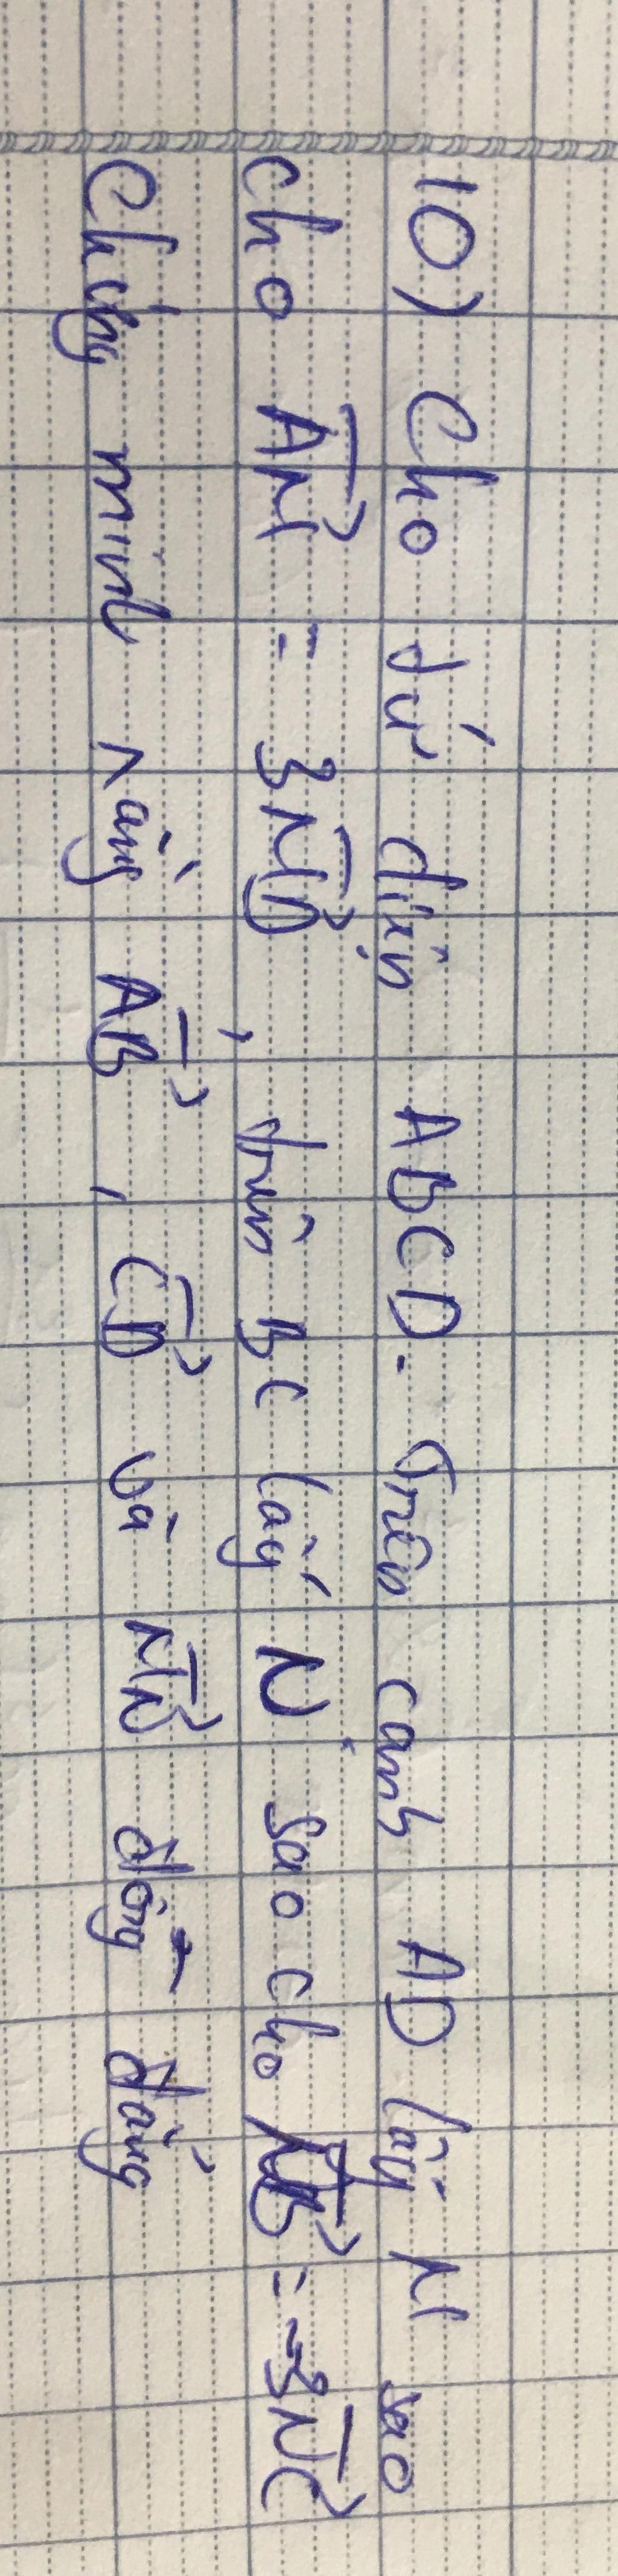 10) Cho tứ diện ABCD. Trên cạnh AD lấy M sao
cho AM = 3MD, trên BC lấy N sao cho NB = -3NC
Chứng minh rằng AB, CD và MN đồng đẳng